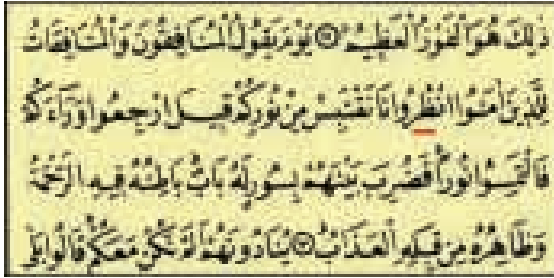 ذَلِكَ هُوَ الْفَوْزُ الْعَظِيمُ ۝ يَوْمَ يَقُولُ الْمُنَافِقُونَ وَالْمُنَافِقَاتُ
لِلَّذِينَ آمَنُوا انْظُرُونَا نَقْتَبِسْ مِنْ نُورِكُمْ قِيلَ ارْجِعُوا وَرَاءَكُمْ
فَالْتَمِسُوا نُورًا فَضُرِبَ بَيْنَهُمْ بِسُورٍ لَهُ بَابٌ بَاطِنُهُ فِيهِ الرَّحْمَةُ
وَظَاهِرُهُ مِنْ قِبَلِهِ الْعَذَابُ ۝ يُنَادُونَهُمْ أَلَمْ نَكُنْ مَعَكُمْ قَالُوا بَلَى